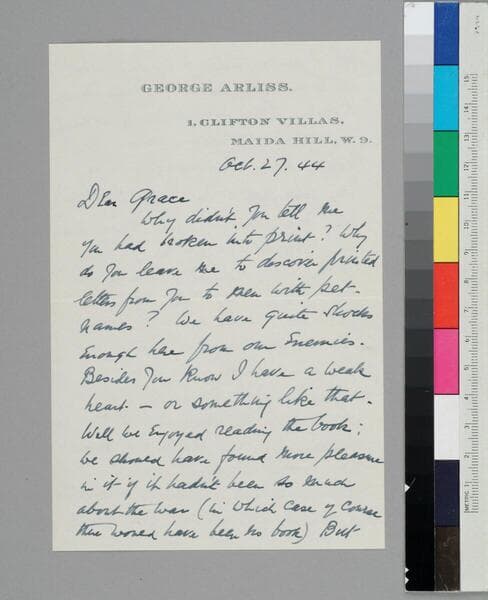 GEORGE ARLISS.
1, CLIFTON VILLAS,
MAIDA HILL, W. 9.
Oct. 27. 44
Dear Grace
Why didn't you tell me
you had broken into print? Why
do you leave me to discover printed
letters from you to men with pet-
names? We have quite shocks
enough here from our Enemies.
Besides you know I have a weak
heart - or something like that.
Well we enjoyed reading the book;
we should have found more pleasure
in it if it hadn't been so much
about the war (in which case of course
there would have been no book) But